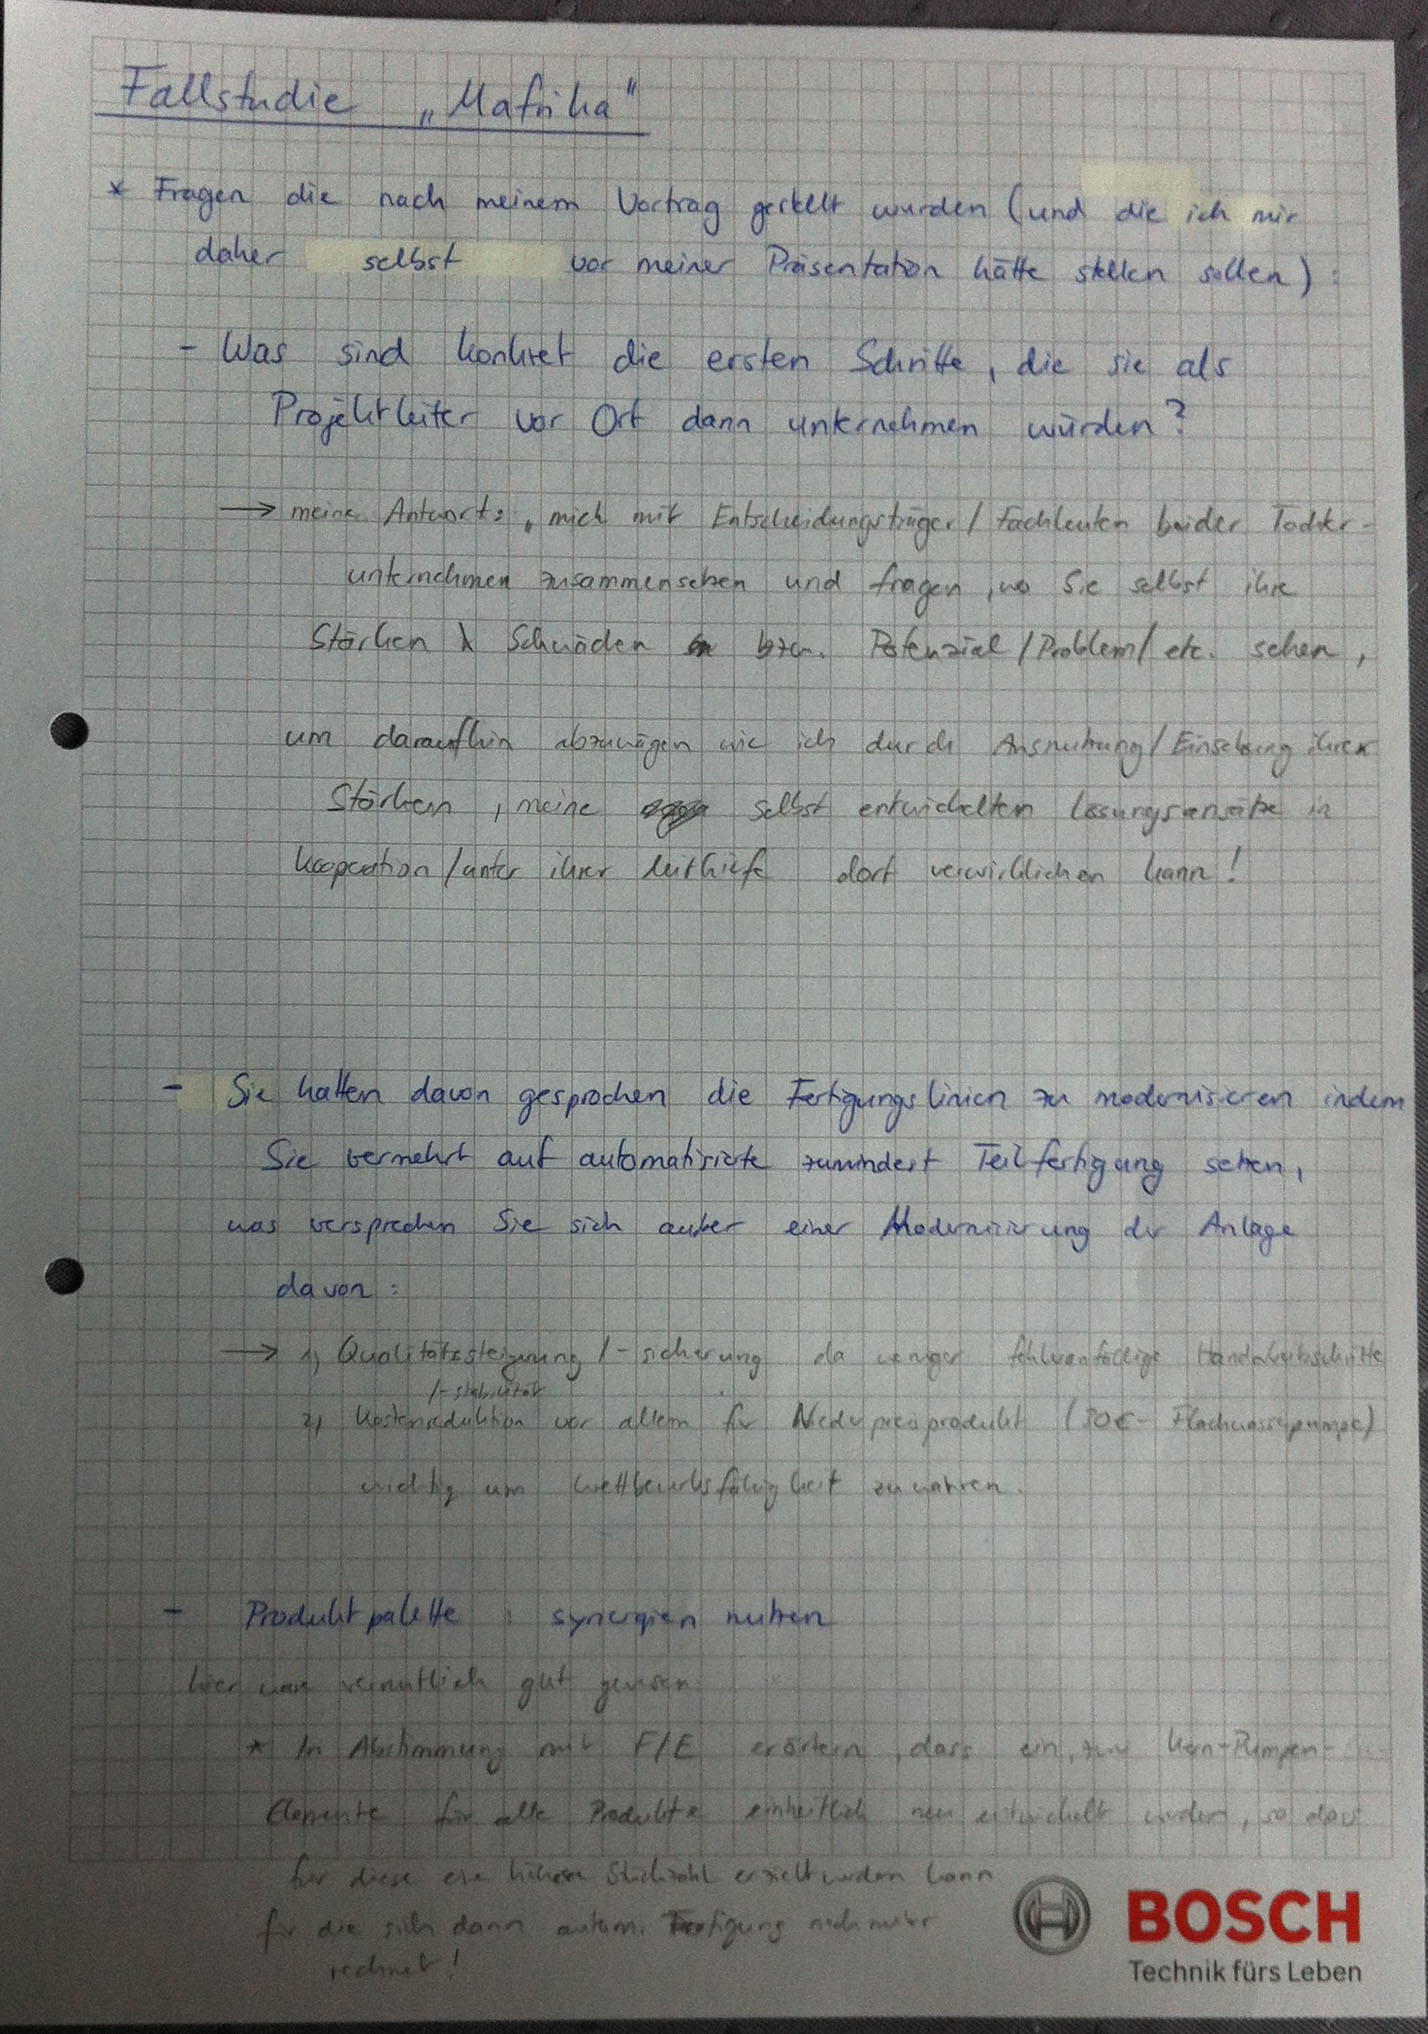 Fallstudie „Mafrika"
* Fragen die nach meinem Vortrag gestellt wurden (und die ich mir
daher selbst vor meiner Präsentation hätte stellen sollen):
- Was sind konkret die ersten Schritte, die sie als
Projektleiter vor Ort dann unternehmen würden?
→ meine Antwort: „mich mit Entscheidungsträger / Fachleuten beider Tochter-
unternehmen zusammensetzen und fragen, wo Sie selbst ihre
Stärken & Schwächen bzw. Potenzial / Problem / etc. sehen,
um daraufhin abzuwägen wie ich durch Ausnutzung / Einsetzung ihrer
Stärken, meine selbst entwickelten Lösungsansätze in
Kooperation / unter ihrer Mithilfe dort verwirklichen kann!
- Sie hatten davon gesprochen die Fertigungslinien zu modernisieren indem
Sie vermehrt auf automatisierte zumindest Teilfertigung setzen,
was versprechen Sie sich außer einer Modernisierung der Anlage
davon:
→ 1) Qualitätssteigerung / -sicherung da weniger fehleranfällige Handarbeitsschritte
/-stabilität
2) Kostenreduktion vor allem für Niedrpreisprodukt (30€- Flachwasserpumpe)
wichtig um Wettbewerbsfähigkeit zu wahren.
- Produktpalette : synergien nutzen
hier wäre vermutlich gut gewesen
* In Abstimmung mit F/E erörtern, dass ein, zwei Kern-Pumpen-
Elemente für alle Produkte einheitlich neu entwickelt werden, so dass
für diese eine höhere Stückzahl erzielt werden kann
für die sich dann autom. Fertigung noch mehr
rechnet!
BOSCH
Technik fürs Leben